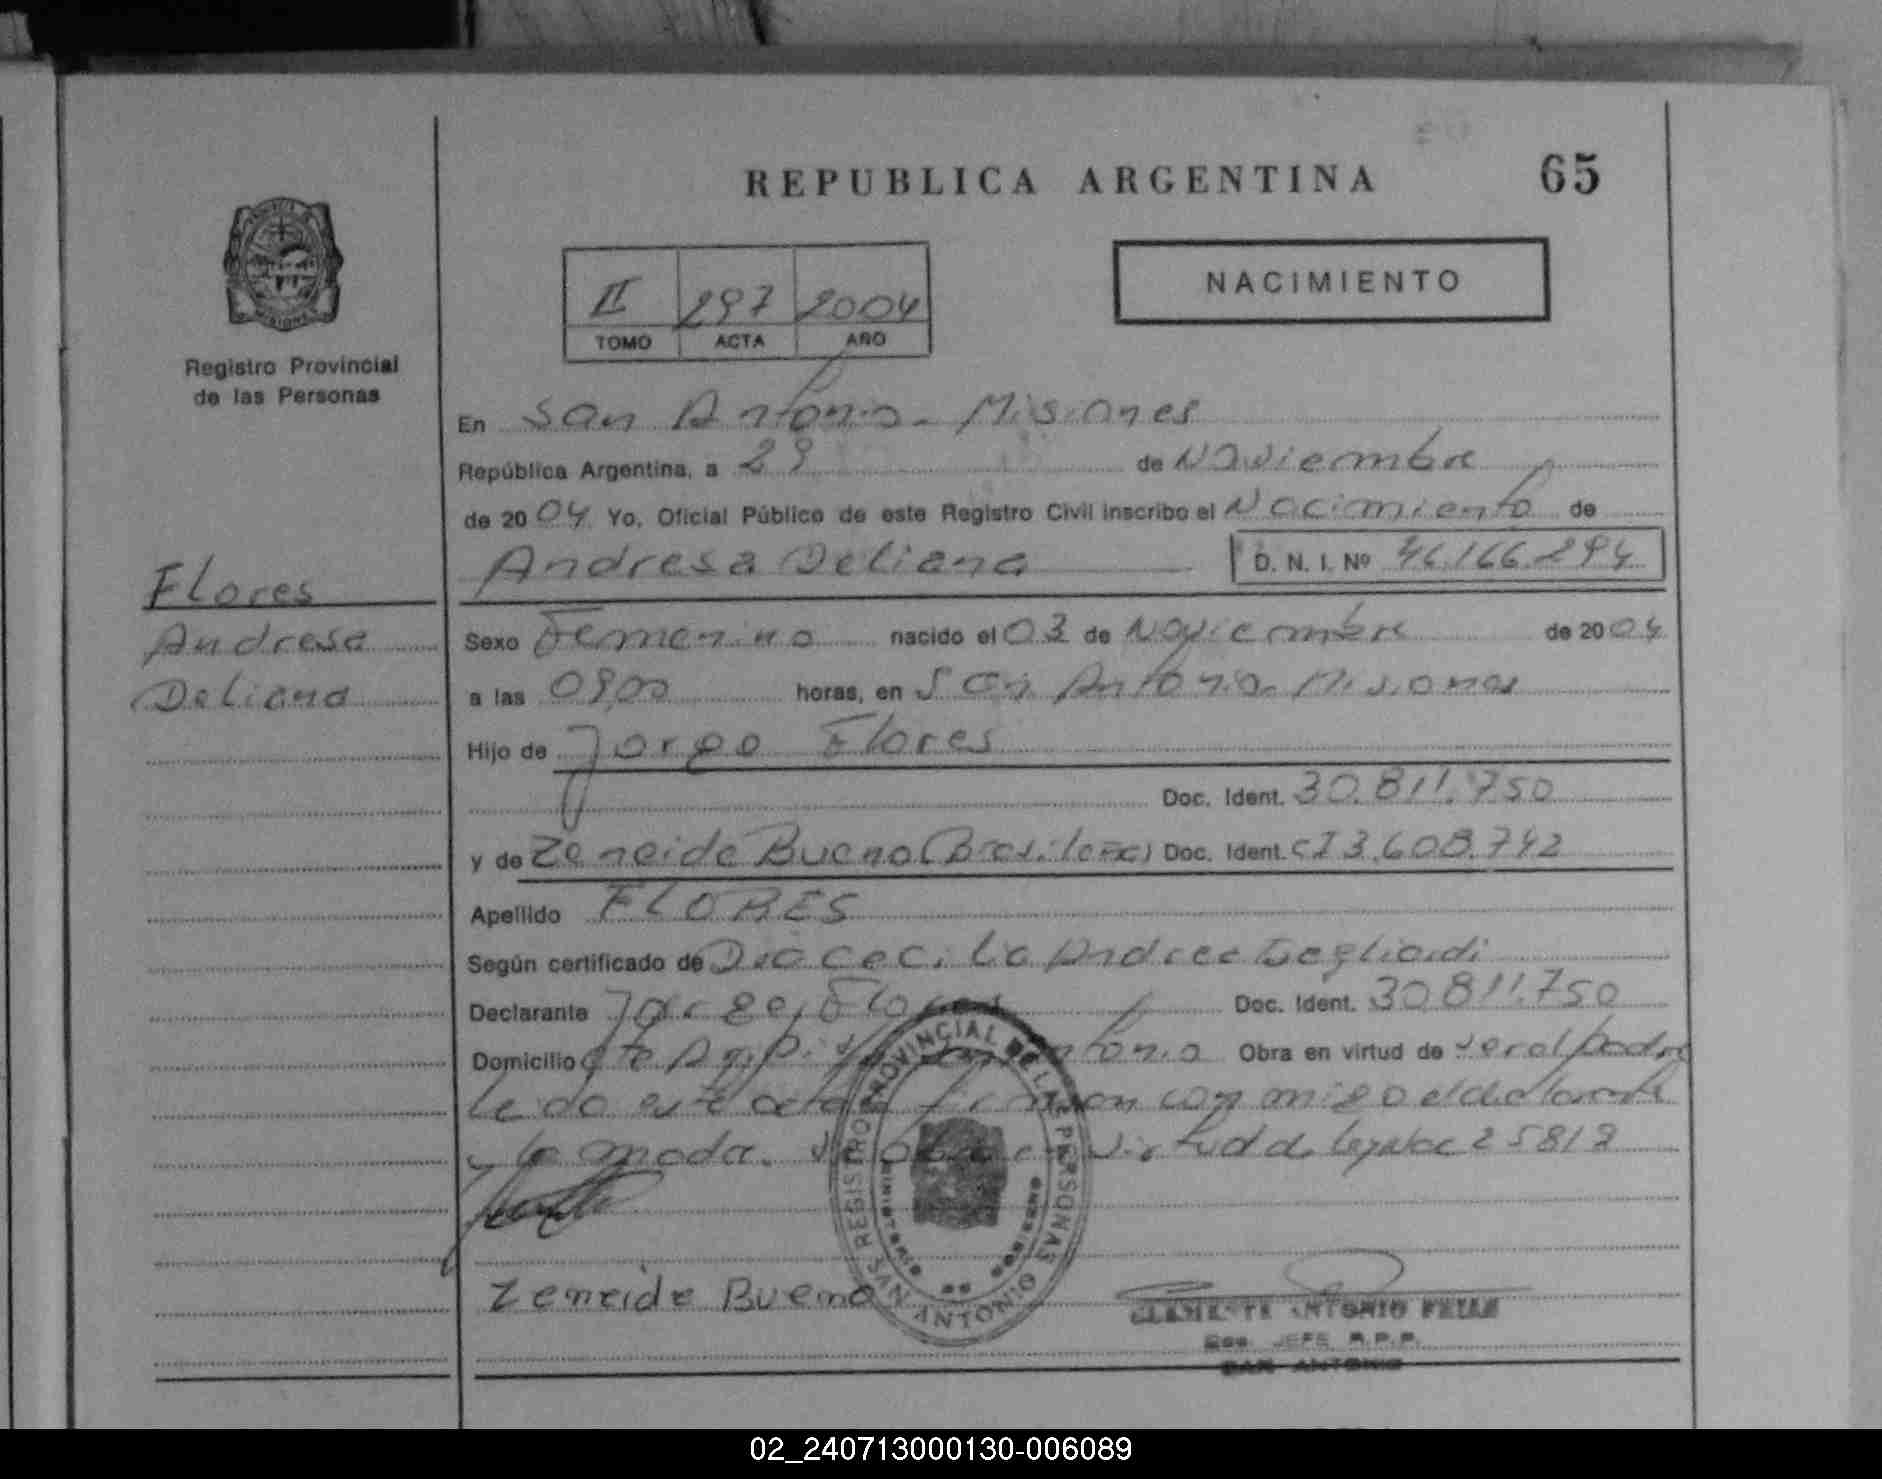 REPUBLICA ARGENTINA
65
II 297 2004
TOMO ACTA AÑO
NACIMIENTO
Registro Provincial
de las Personas
En San Antonio - Misiones
República Argentina, a 29 de Noviembre
de 2004 Yo, Oficial Público de este Registro Civil inscribo el Nacimiento de
Andresa Deliana D. N. I. Nº 46.166.294
Flores
Andresa
Deliana
Sexo Femenino nacido el 03 de Noviembre de 2004
a las 09,00 horas, en San Antonio - Misiones
Hijo de Jorge Flores
Doc. Ident. 30.811.750
y de Zeneide Bueno (Brasileña) Doc. Ident. CI 3.608.742
Apellido FLORES
Según certificado de Dra Cecilia Andrea
Declarante Jorge Flores Doc. Ident. 30.811.750
Domicilio San Antonio Obra en virtud de ser el padre
Leido este acta firman conmigo el declarante
y la madre. virtud de 25819
REGISTRO PROVINCIAL DE LAS PERSONAS
MINISTERIO DE GOBIERNO
SAN ANTONIO
Zeneide Bueno
CLEMENTE ANTONIO
JEFE R.P.P.
SAN ANTONIO
02_240713000130-006089